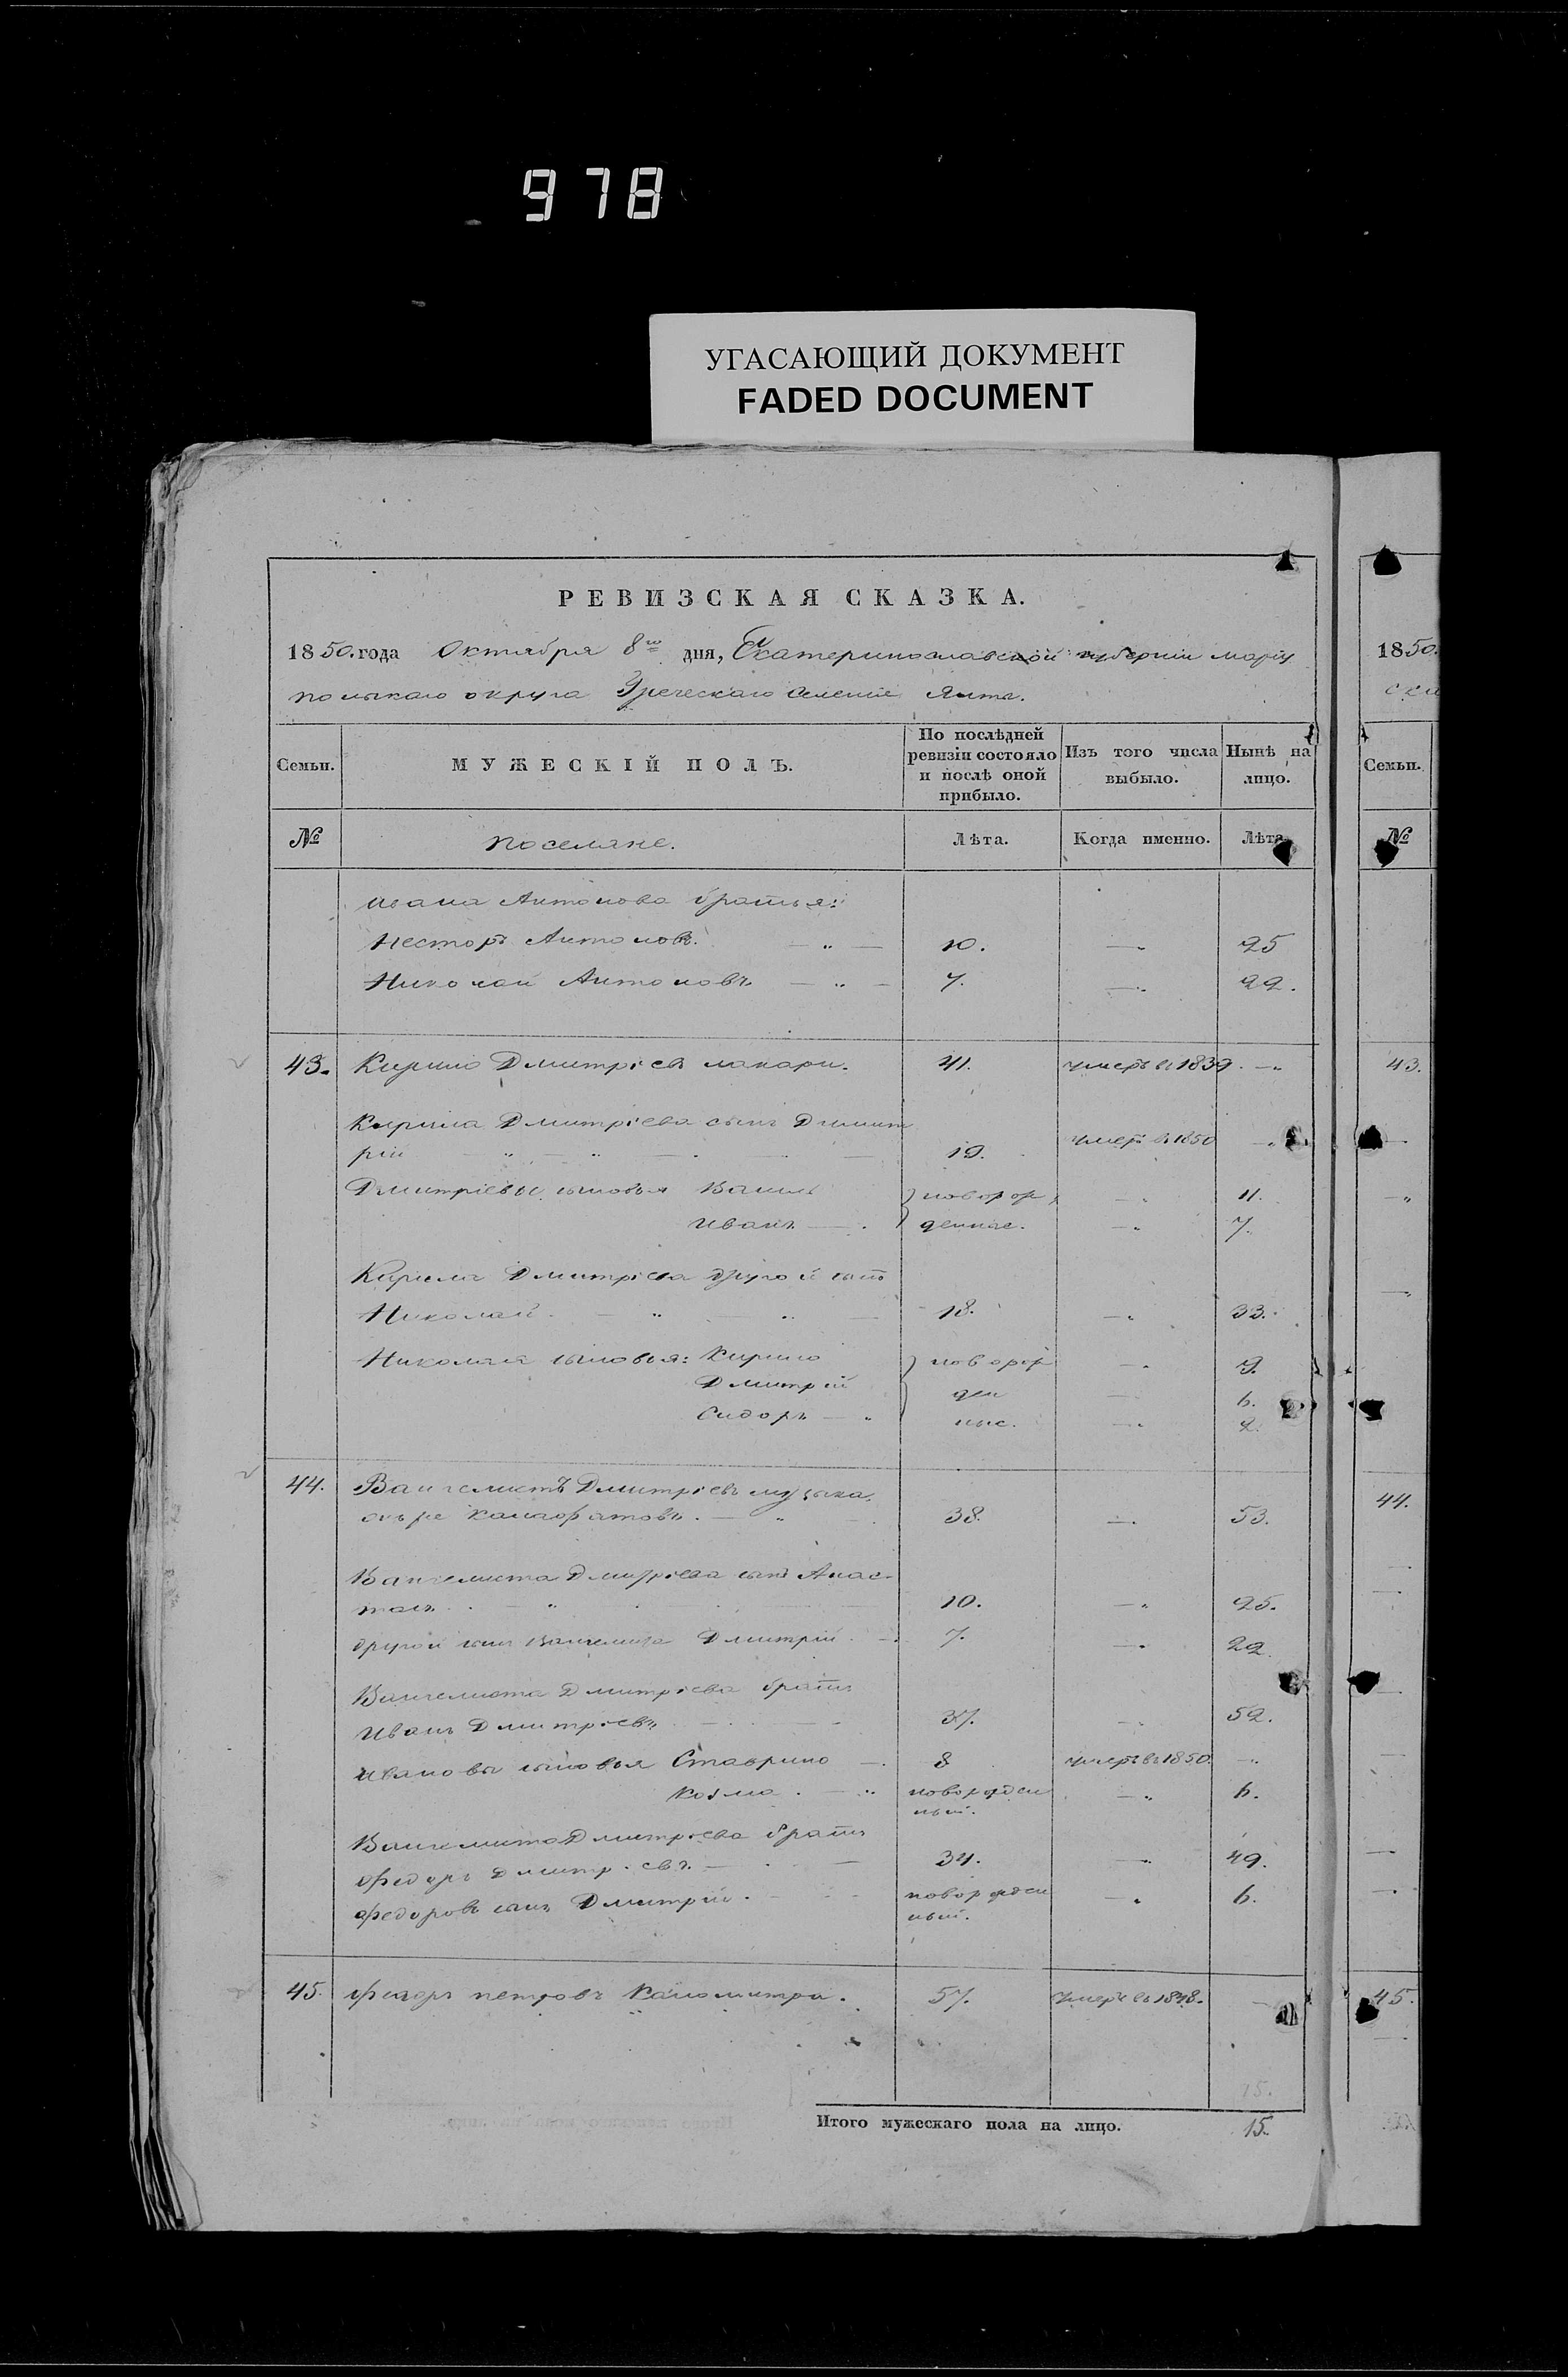 978
УГАСАЮЩИЙ ДОКУМЕНТ
FADED DOCUMENT
РЕВИЗСКАЯ СКАЗКА.
1850. года Октября 8го дня, Екатеринославской губернии Мариу
польскаго округа Греческаго селение Ялта.
Семьи. МУЖЕСКІЙ ПОЛЪ. По послѣдней ревизіи состояло и послѣ оной прибыло. Изъ того числа выбыло. Нынѣ на лицо.
№ поселяне. Лѣта. Когда именно. Лѣта
Ивана Антонова братья:
Несторъ Антоновъ. 10. — 25
Николай Антоновъ 7. — 22.
43. Кирило Дмитріевъ 41. умеръ въ 1839. —
Кирила Дмитріева сынъ Димит
рій 19. умеръ въ 1850 —
Дмитріевы сыновья Василь } новорож — 11.
Иванъ } денные. — 7.
Кирила Дмитріева другой сынъ
Николай 18. — 33.
Николая сыновья: Кирило } новорож — 9.
Дмитрій } ден — 6.
Сидоръ ные. — 2.
44. Вангелистъ Дмитріевъ
38. — 53.
Вангелиста Дмитріева сынъ Анас-
тасъ 10. — 25.
другой сынъ Вангелиста Дмитрій 7. — 22.
Вангелиста Дмитріева братъ
Иванъ Дмитріевъ 37. — 52.
Ивановы сыновья Ставрино 8 умеръ въ 1850. —
Козма новорожден — 6.
ный.
Вангелиста Дмитріева братъ
Федоръ Дмитріевъ 34. — 49.
Федоровъ сынъ Дмитрій. новорожден — 6.
ный.
45. Федоръ Петровъ 57. умеръ въ 1848. —
15.
Итого мужескаго пола на лицо. 15.
1850.
Семьи.
№
43.
44.
45.